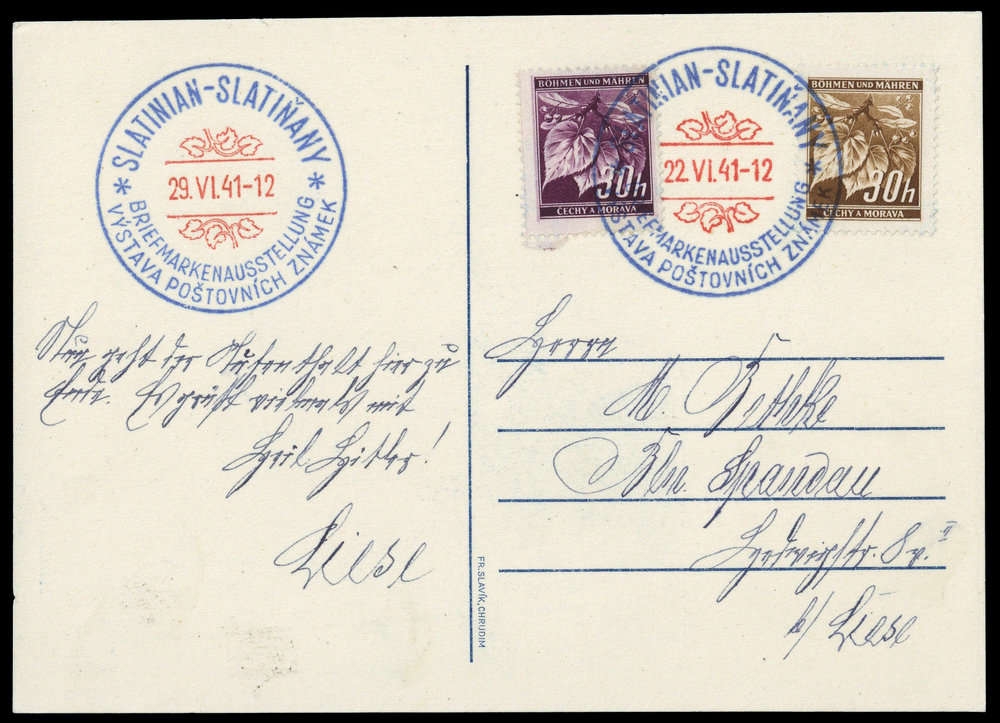 SLATINIAN-SLATIŇANY
29.VI.41-12
* BRIEFMARKENAUSSTELLUNG *
VÝSTAVA POŠTOVNÍCH ZNÁMEK
BÖHMEN UND MÄHREN
30h
ČECHY A MORAVA
SLATINIAN-SLATIŇANY
22.VI.41-12
BRIEFMARKENAUSSTELLUNG *
VÝSTAVA POŠTOVNÍCH ZNÁMEK
BÖHMEN UND MÄHREN
30h
ČECHY A MORAVA
Nun geht der Aufenthalt hier zu
Ende. Es grüßt vielmals mit
Heil Hitler!
Liese
FR. SLAVÍK, CHRUDIM
Herrn
M. Bethke
Bln. Spandau
II
b/ Liese